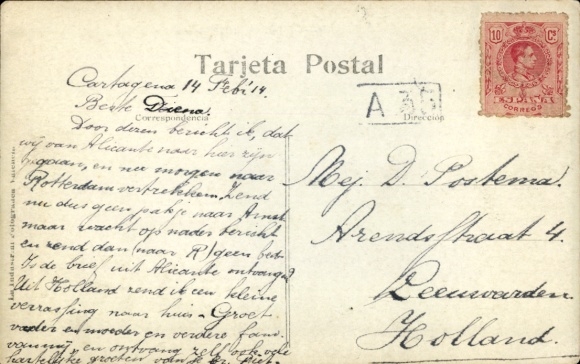 Tarjeta Postal
10 Cs
ESPAÑA
CORREOS
A
Correspondencia
Dirección
Cartagena 14 Febr 14.
Beste Diena.
Door dezen bericht ik, dat
wij van Alicante naar hier zijn
gegaan, en nu morgen naar
Rotterdam vertrekken. Zend
nu dus geen pakje naar
maar wacht op nader bericht
en zend dan (naar R) geen
Is de brief uit Alicante ontvangen?
Uit Holland zend ik een kleine
verrassing naar huis. Groet
vader en moeder en verdere fam.
van mij en ontvang zelf ook vele
hartelijke groeten van je
Mej. D. Postema.
Arendsstraat 4.
Leeuwarden
Holland.